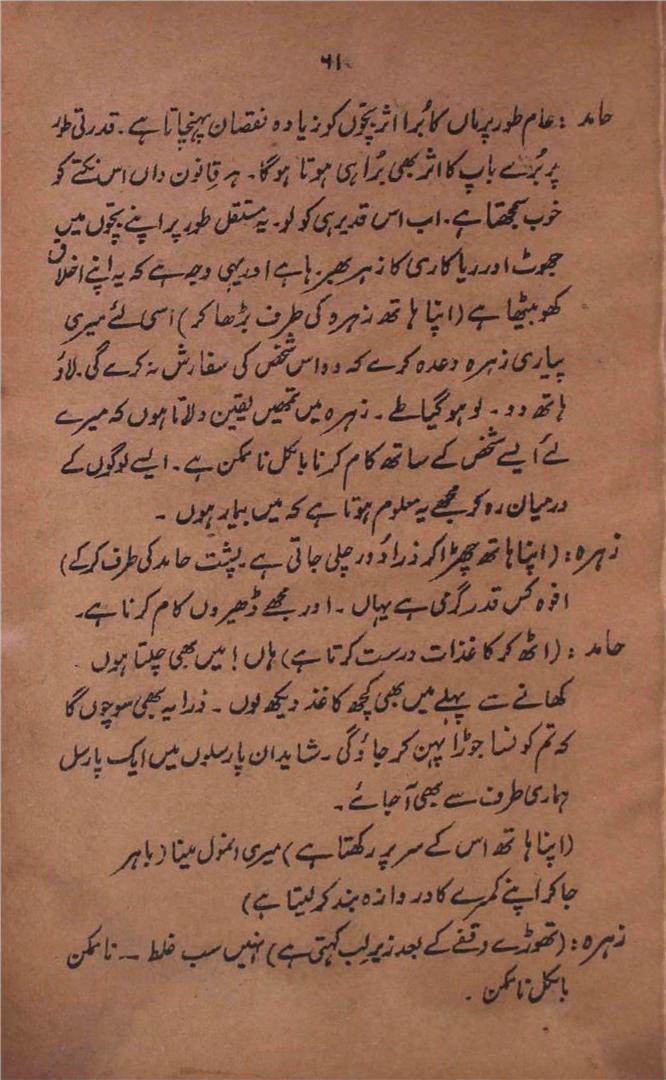 ۶۱
حامد : عام طور پر ماں کا بُرا اثر بچّوں کو زیادہ نقصان پہنچاتا ہے۔ قدرتی طور
پر بُرے باپ کا اثر بھی بُرا ہی ہوتا ہوگا۔ ہر قانون داں اس نکتے کو
خوب سمجھتا ہے۔ اب اس قدیر ہی کو لو۔ یہ مستقل طور پر اپنے بچّوں میں
جھوٹ اور ریاکاری کا زہر بھر رہا ہے اور یہی وجہ ہے کہ یہ اپنے اخلاق
کھو بیٹھا ہے (اپنا ہاتھ زہرہ کی طرف بڑھا کر) اسی لئے میری
پیاری زہرہ وعدہ کرے کہ وہ اس شخص کی سفارش نہ کرے گی۔ لاؤ
ہاتھ دو۔ لو ہو گیا طے۔ زہرہ میں تمھیں یقین دلاتا ہوں کہ میرے
لئے ایسے شخص کے ساتھ کام کرنا بالکل ناممکن ہے۔ ایسے لوگوں کے
درمیان رہ کر مجھے یہ معلوم ہوتا ہے کہ میں بیمار ہوں ۔
زہرہ : (اپنا ہاتھ چھڑا کر ذرا دور چلی جاتی ہے۔ پشت حامد کی طرف کر کے)
افوہ کس قدر گرمی ہے یہاں ۔ اور مجھے ڈھیروں کام کرنا ہے۔
حامد : (اٹھ کر کاغذات درست کرتا ہے) ہاں ! میں بھی چلتا ہوں ۔
کھانے سے پہلے میں بھی کچھ کاغذ دیکھ لوں ۔ ذرا یہ بھی سوچوں گا
کہ تم کونسا جوڑا پہن کر جاؤ گی ۔ شاید ان پارسلوں میں ایک پارسل
ہماری طرف سے بھی آجائے ۔
(اپنا ہاتھ اس کے سر پر رکھتا ہے) میری انمول مینا (باہر
جا کر اپنے کمرے کا دروازہ بند کر لیتا ہے)
زہرہ : (تھوڑے وقفے کے بعد زیرِ لب کہتی ہے) نہیں سب غلط ـــ ناممکن
بالکل ناممکن ۔